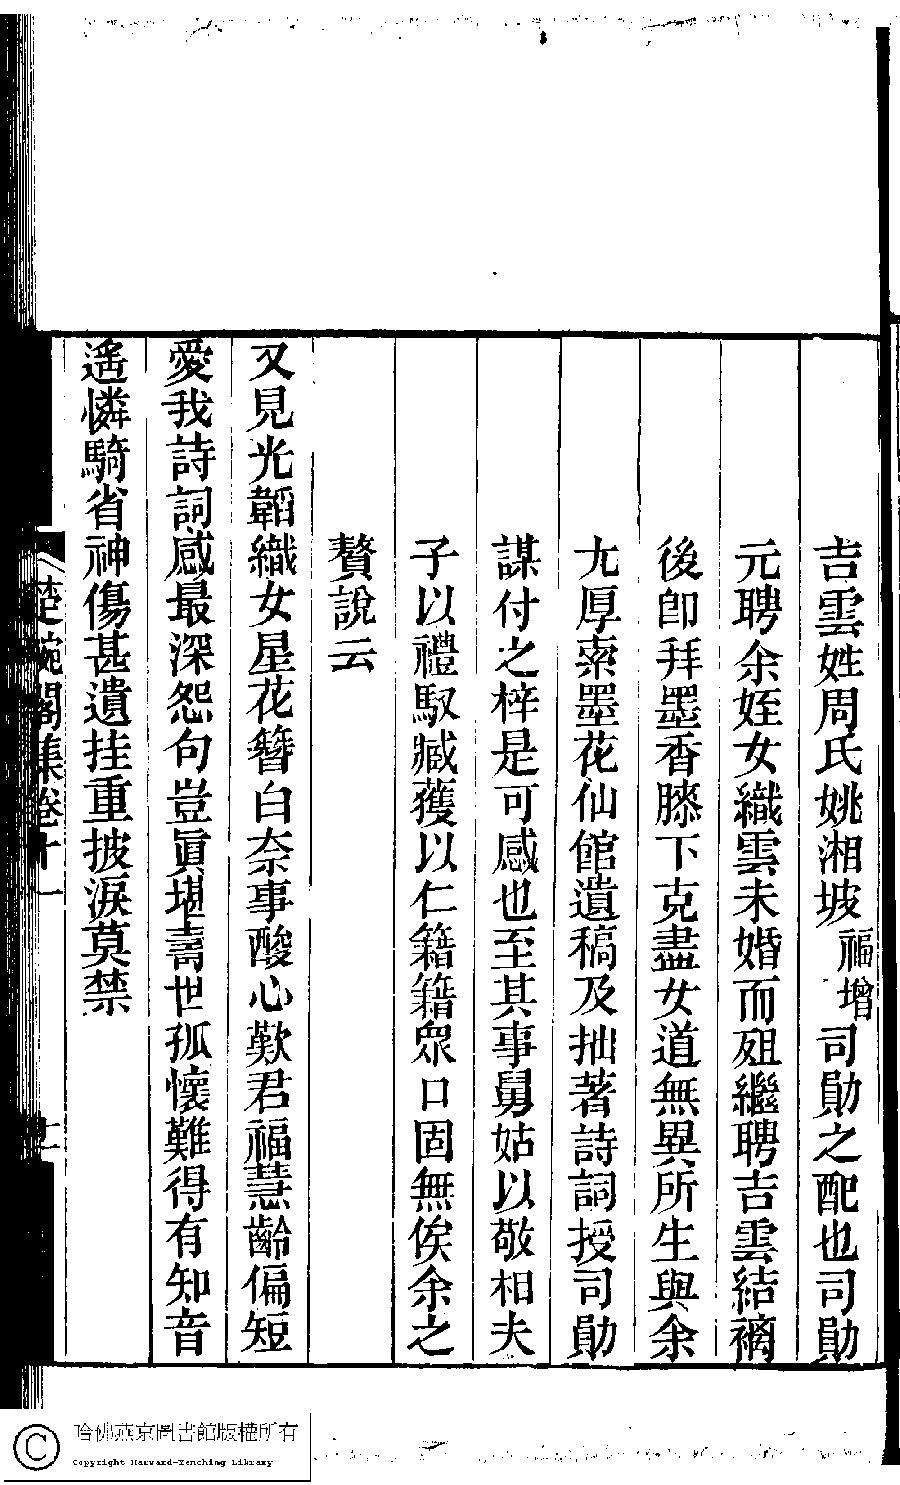 吉雲姓周氏姚湘坡福增司勛之配也司勛
元聘余姪女織雲未婚而殂繼聘吉雲結褵
後卽拜墨香膝下克盡女道無異所生與余
尢厚索墨花仙館遺稿及拙著詩詞授司勛
謀付之梓是可感也至其事舅姑以敬相夫
子以禮馭臧獲以仁籍籍眾口固無俟余之
贅說云
又見光韜織女星花簪白奈事酸心歎君福慧齡偏短
愛我詩詞感最深怨句豈眞堪壽世孤懷難得有知音
遥憐騎省神傷甚遺挂重披淚莫禁
楚畹閣集卷十一
哈佛燕京圖書館版權所有
Copyright Harvard-Yenching Library